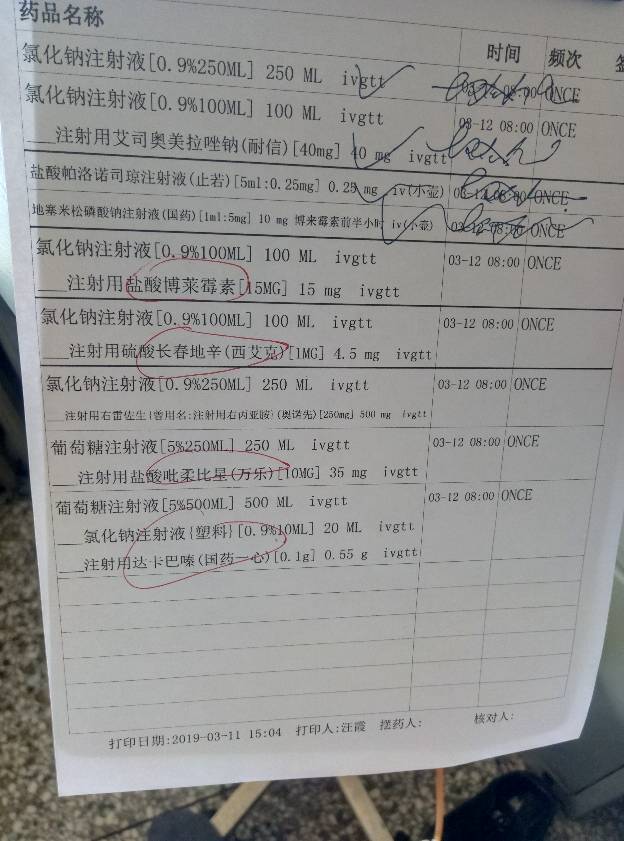 药品名称
时间 频次
氯化钠注射液[0.9%250ML] 250 ML ivgtt 03-12 08:00 ONCE
氯化钠注射液[0.9%100ML] 100 ML ivgtt 03-12 08:00 ONCE
___注射用艾司奥美拉唑钠(耐信)[40mg] 40 mg ivgtt
盐酸帕洛诺司琼注射液(止若)[5ml:0.25mg] 0.25 mg iv(小壶) 03-12 08:00 ONCE
地塞米松磷酸钠注射液(国药)[1ml:5mg] 10 mg 博来霉素前半小时 iv(小壶) 03-12 08:00 ONCE
氯化钠注射液[0.9%100ML] 100 ML ivgtt 03-12 08:00 ONCE
___注射用盐酸博莱霉素[15MG] 15 mg ivgtt
氯化钠注射液[0.9%100ML] 100 ML ivgtt 03-12 08:00 ONCE
___注射用硫酸长春地辛(西艾克)[1MG] 4.5 mg ivgtt
氯化钠注射液[0.9%250ML] 250 ML ivgtt 03-12 08:00 ONCE
___注射用右雷佐生{曾用名:注射用右丙亚胺}(奥诺先)[250mg] 500 mg ivgtt
葡萄糖注射液[5%250ML] 250 ML ivgtt 03-12 08:00 ONCE
___注射用盐酸吡柔比星(万乐)[10MG] 35 mg ivgtt
葡萄糖注射液[5%500ML] 500 ML ivgtt 03-12 08:00 ONCE
___氯化钠注射液{塑料}[0.9%10ML] 20 ML ivgtt
___注射用达卡巴嗪(国药一心)[0.1g] 0.55 g ivgtt
打印日期:2019-03-11 15:04 打印人:汪霞 摆药人: 核对人: